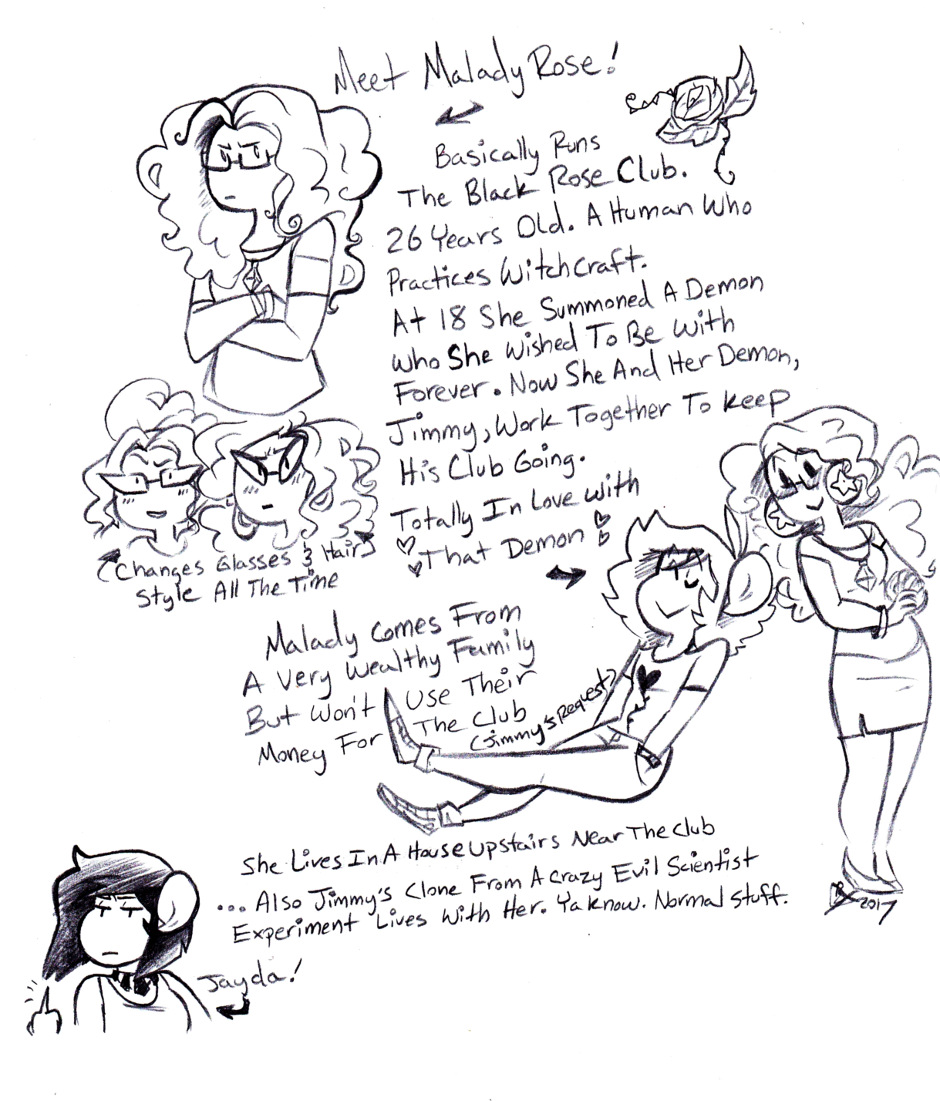 Meet Malady Rose!
Basically Runs
The Black Rose Club.
26 Years Old. A Human Who
Practices Witchcraft.
At 18 She Summoned A Demon
Who She Wished To Be With
Forever. Now She And Her Demon,
Jimmy, Work Together To Keep
His Club Going.
Totally In Love With
That Demon
(Changes Glasses & Hair)
Style All The Time
Malady Comes From
A Very Wealthy Family
But Won't Use Their
Money For The Club
(Jimmy's Request)
She Lives In A House Upstairs Near The Club
... Also Jimmy's Clone From A Crazy Evil Scientist
Experiment Lives With Her. Ya Know. Normal Stuff.
Jayda!
2017